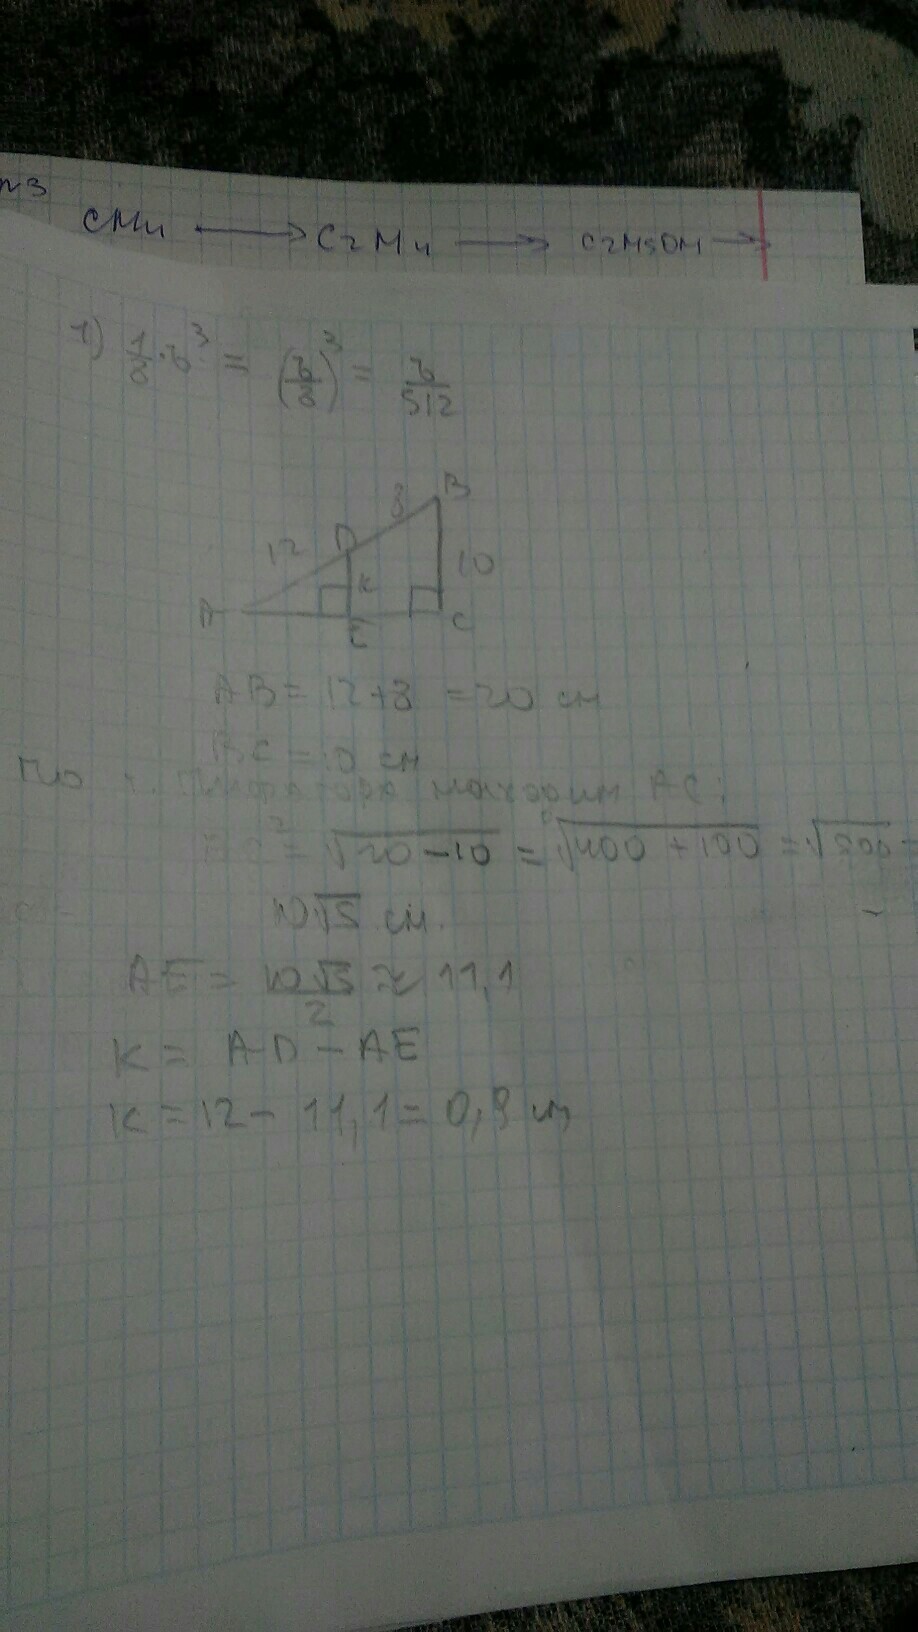 №3
CH4 → C2H4 → C2H5OH →
1) 1/8 · b³ = (b/8)³ = b/512
B
8
D
12
10
K
A
E
C
AB = 12 + 8 = 20 см
BC = 10 см
По т. Пифагора находим AC:
² = √20 - 10 = √400 + 100 = √500 =
10√5 см.
AE = 10√5/2 ≈ 11,1
K = AD - AE
K = 12 - 11,1 = 0,9 см